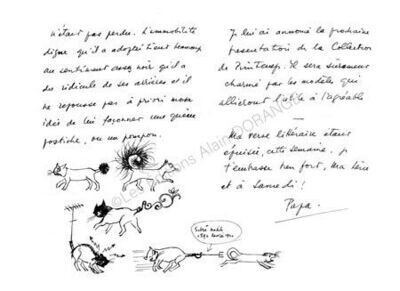 n'était pas perdue. L'immobilité
digne qu'il a adoptée tient beaucoup
au sentiment assez noir qu'il a
du ridicule de ses arrières et il
ne repousse pas à priori mon
idée de lui façonner une queue
postiche, ou un pompon.
Je lui ai annoncé la prochaine
présentation de la Collection
de Printemps. Il sera sûrement
charmé par les modèles qui
allieront l'utile à l'agréable
Ma verve littéraire étant
épuisée, cette semaine, je
t'embrasse bien fort, Ma
et à Samedi !
Papa.
©Les Alain DORANGE